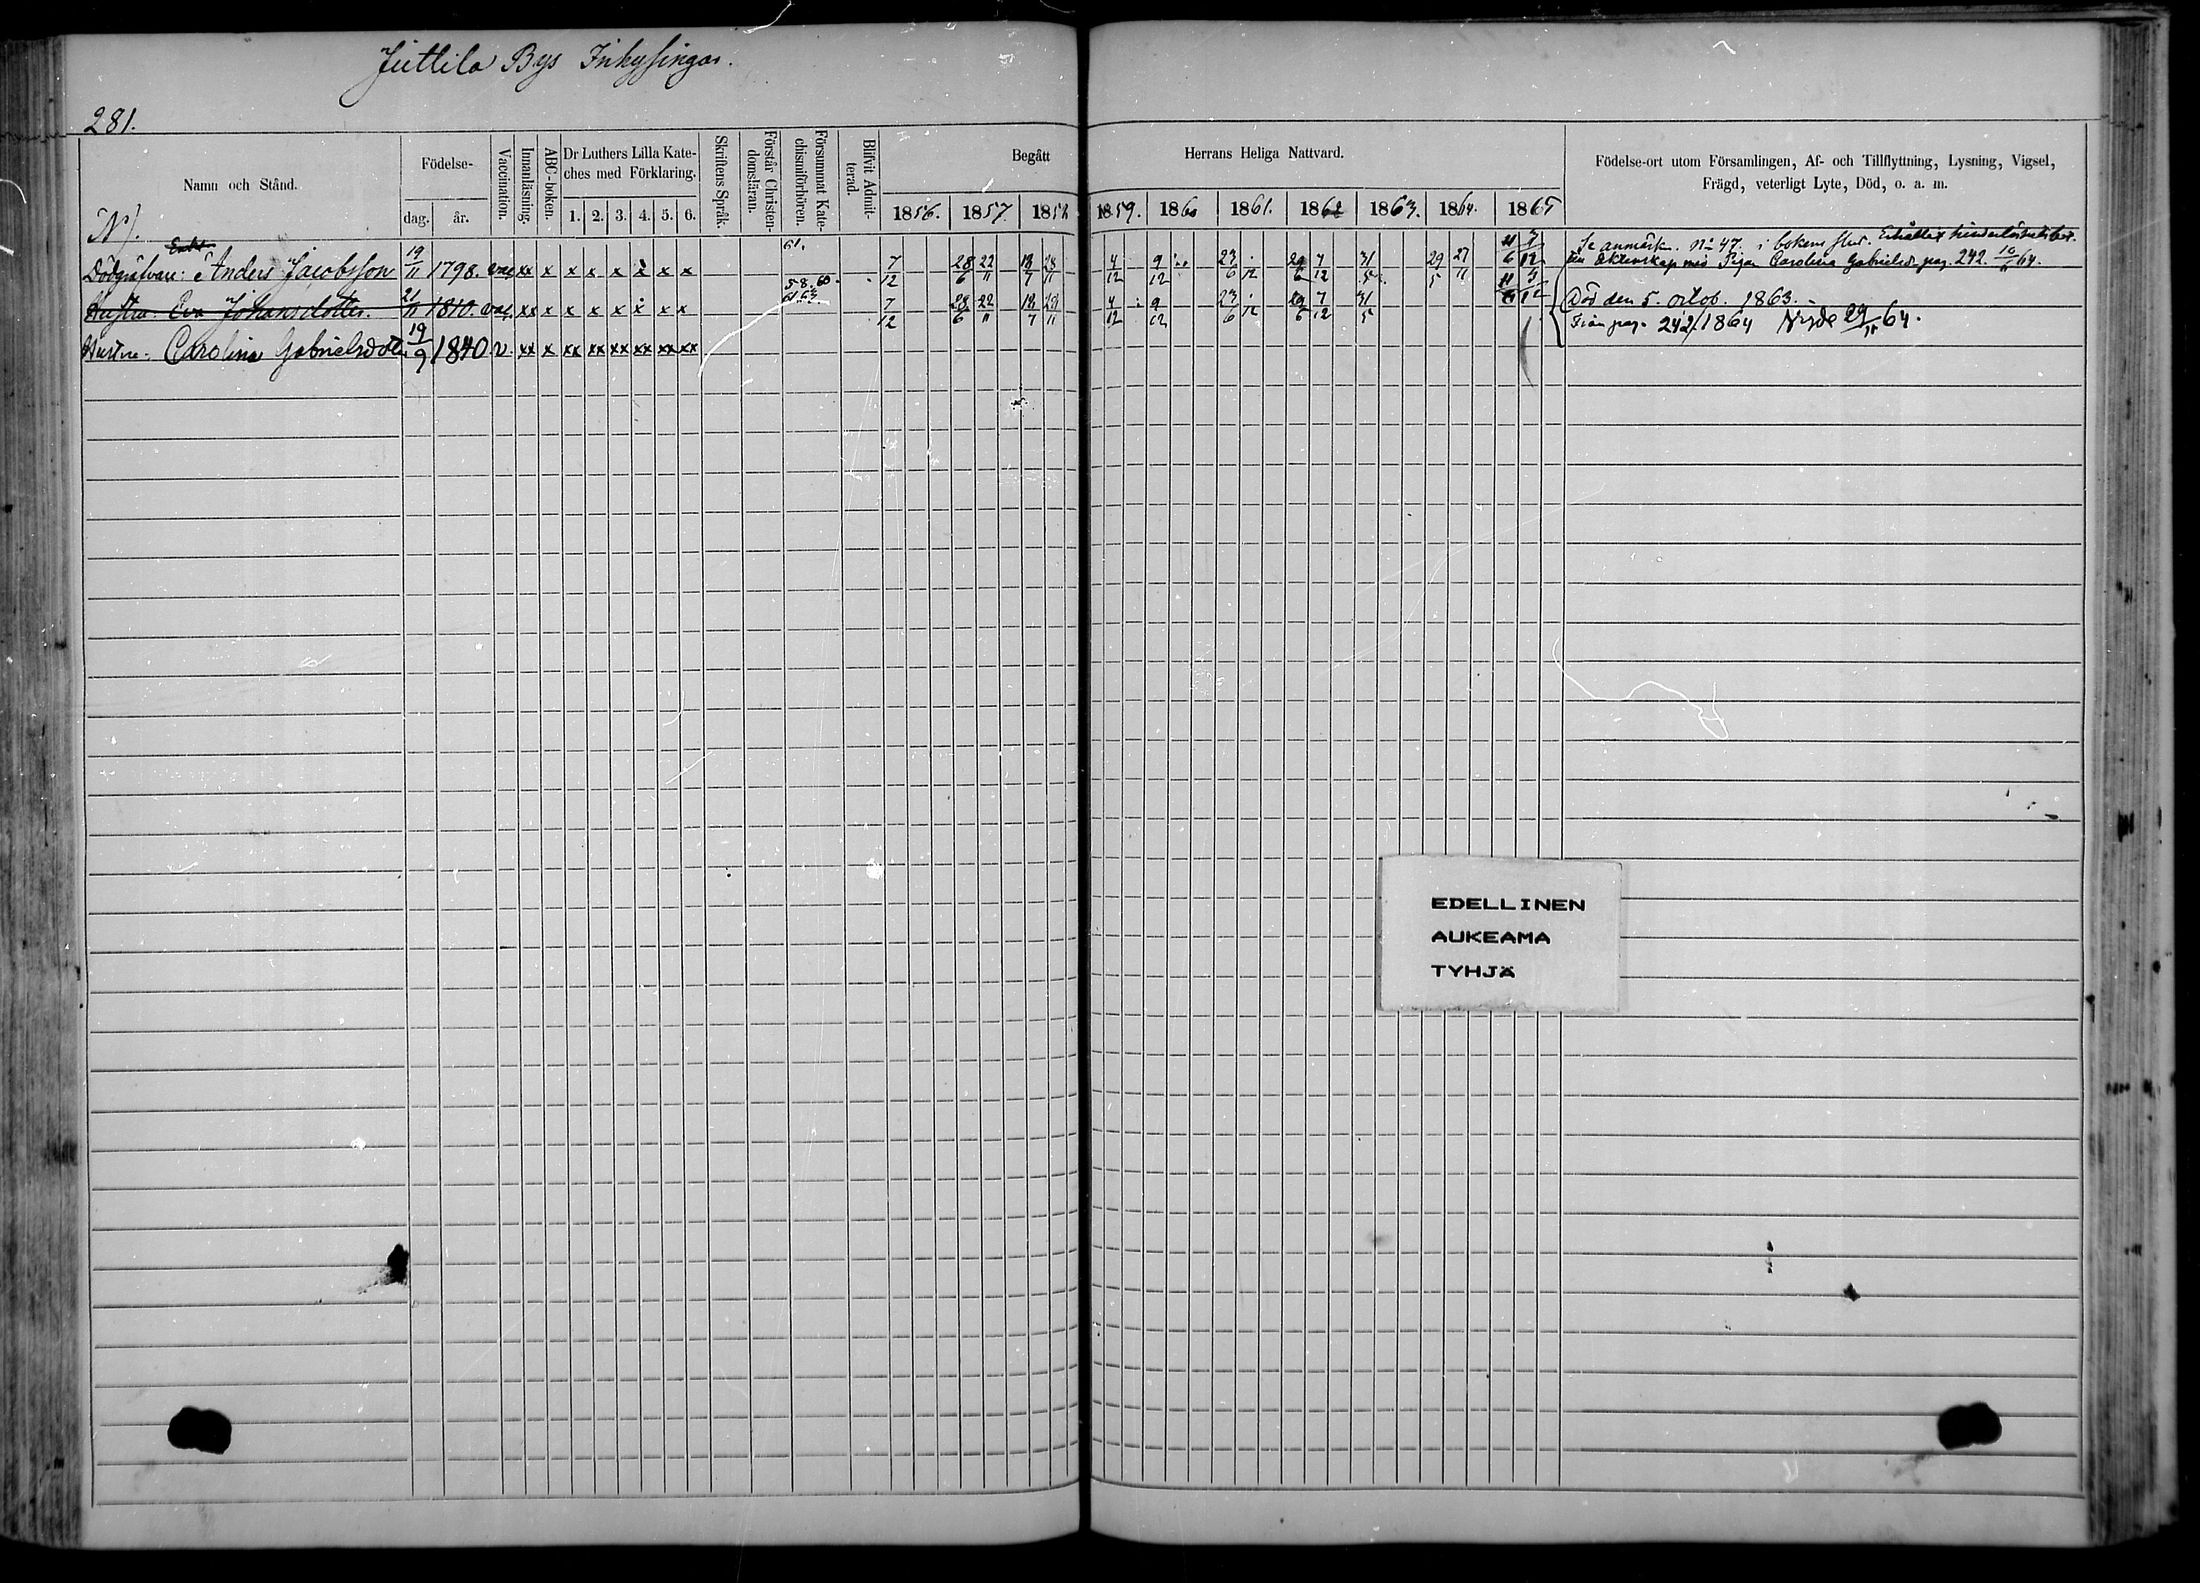 Juttila Bys Inhysingar.
281.
Namn och Stånd.
Födelse-
dag. år.
Vaccination.
Innanläsning.
ABC-boken.
Dr Luthers Lilla Kate-
ches med Förklaring.
1. 2. 3. 4. 5. 6.
Skriftens Språk.
Förstår Christen-
domsläran.
Försummat Kate-
chismiförhören.
Blifvit Admit-
terad.
Begått Herrans Heliga Nattvard.
1856. 1857. 1858 1859. 1860 1861. 1862 1863. 1864. 1865
Födelse-ort utom Församlingen, Af- och Tillflyttning, Lysning, Vigsel,
Frägd, veterligt Lyte, Död, o. a. m.
N).
Enkl.
Dödgräfvare: Anders Jacobsson 19/11 1798. vac xx x x x x x x x 61. 7/12 28/6 22/11 18/7 28/11 4/12 9/12 23/6 29/6 7/12 31/5 29/5 27/11 11/6 3/12 Se anmärk. No 47. i bokens slut. Erhållit hinderlöshetsbet.
till äktenskap med Pigan Carolina Gabrielsd. pag. 242. 10/11 64.
Hustru. Eva Johansdotter. 21/11 1810. vac. xx x x x x x x x 58. 60 61. 63 7/12 28/6 22/11 18/7 28/11 4/12 9/12 23/6 29/6 7/12 31/5 Död den 5. octob. 1863.
Hustru. Carolina Gabrielsdotr 19/9 1840 v. xx x xx xx xx xx xx xx Från pag. 242/1864 Vigde 29/11 64.
EDELLINEN
AUKEAMA
TYHJÄ